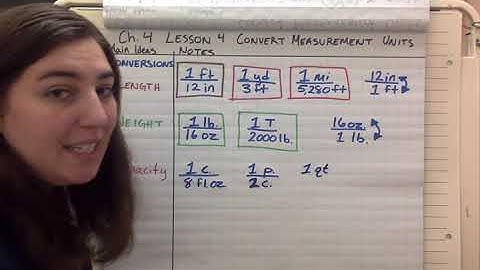 Ch. 4 Lesson 4 Convert Measurement Units
Main Ideas NOTES
CONVERSIONS
LENGTH 1 ft/12 in 1 yd/3 ft 1 mi/5,280 ft 12 in/1 ft
WEIGHT 1 lb./16 oz 1 T/2000 lb. 16 oz./1 lb.
Capacity 1 c./8 fl oz 1 p./2 c. 1 qt